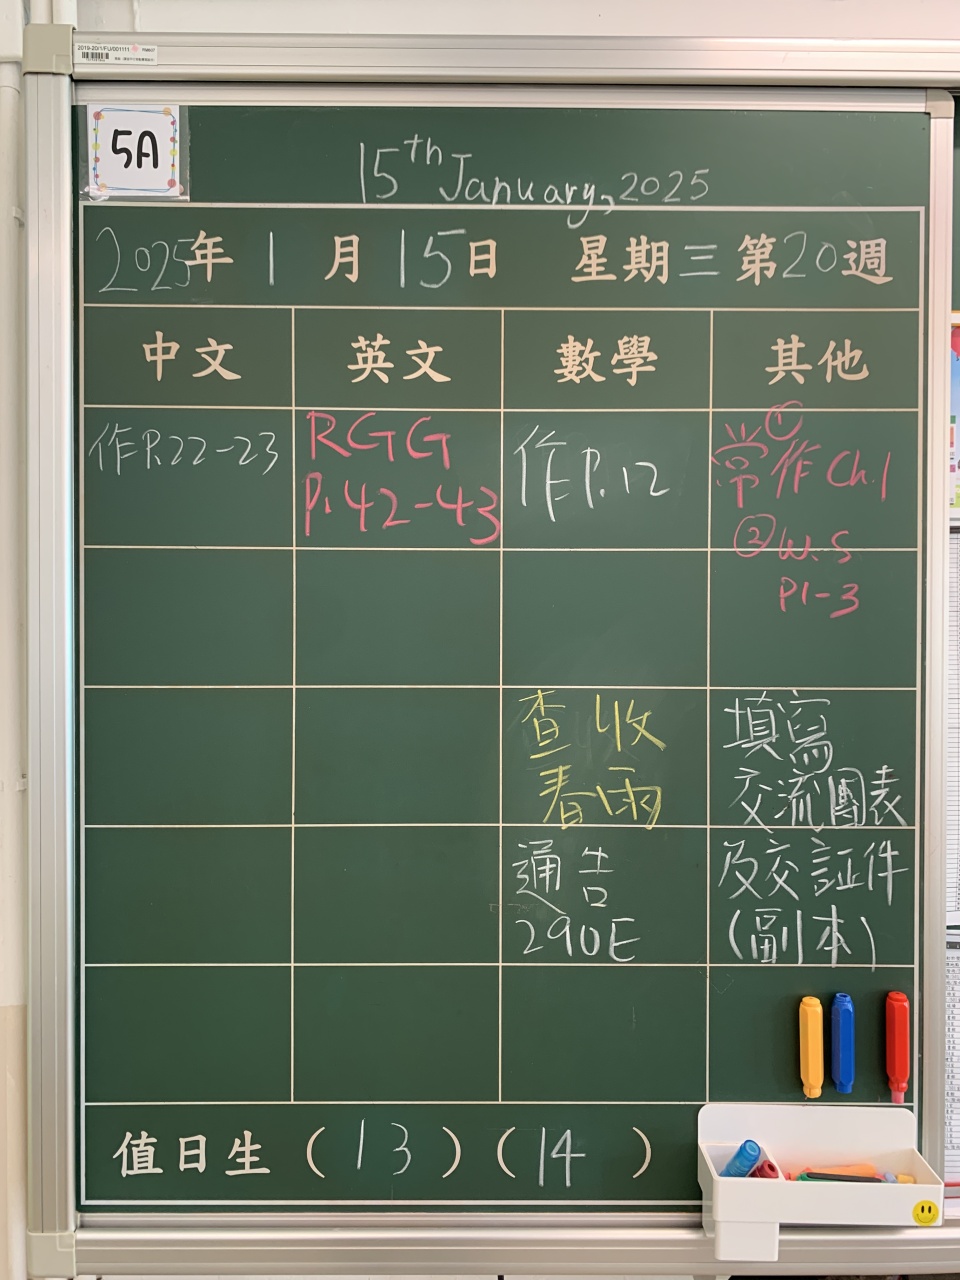 2019-20/1/FU/001111
5A
15th January, 2025
2025年 1月 15日 星期三 第20週
中文 英文 數學 其他
作P.22-23
RGG
P.42-43
作P.12
①
常作 Ch.1
② W.S
P1-3
查收
春雨
通告
290E
填寫
交流團表
及交証件
(副本)
值日生 (13) (14)